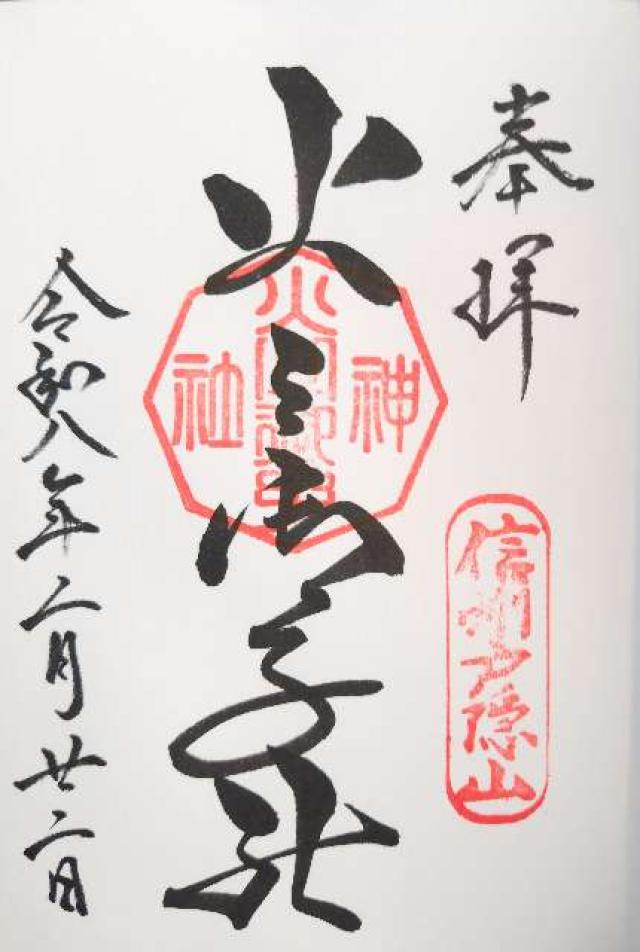 奉拝
信州戸隠山
火之御子社
神社
令和八年二月廿二日